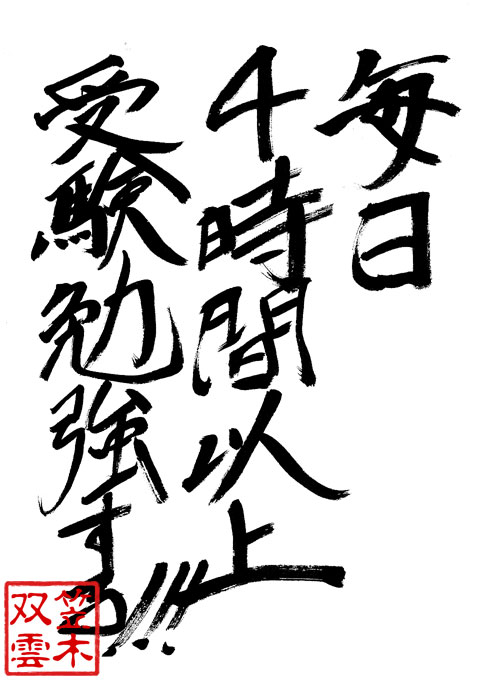 毎日
4時間以上
受験勉強する!!!
笠木
双雲